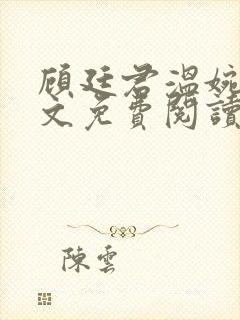 顾廷君溫婉
文免費閱讀
陳雲